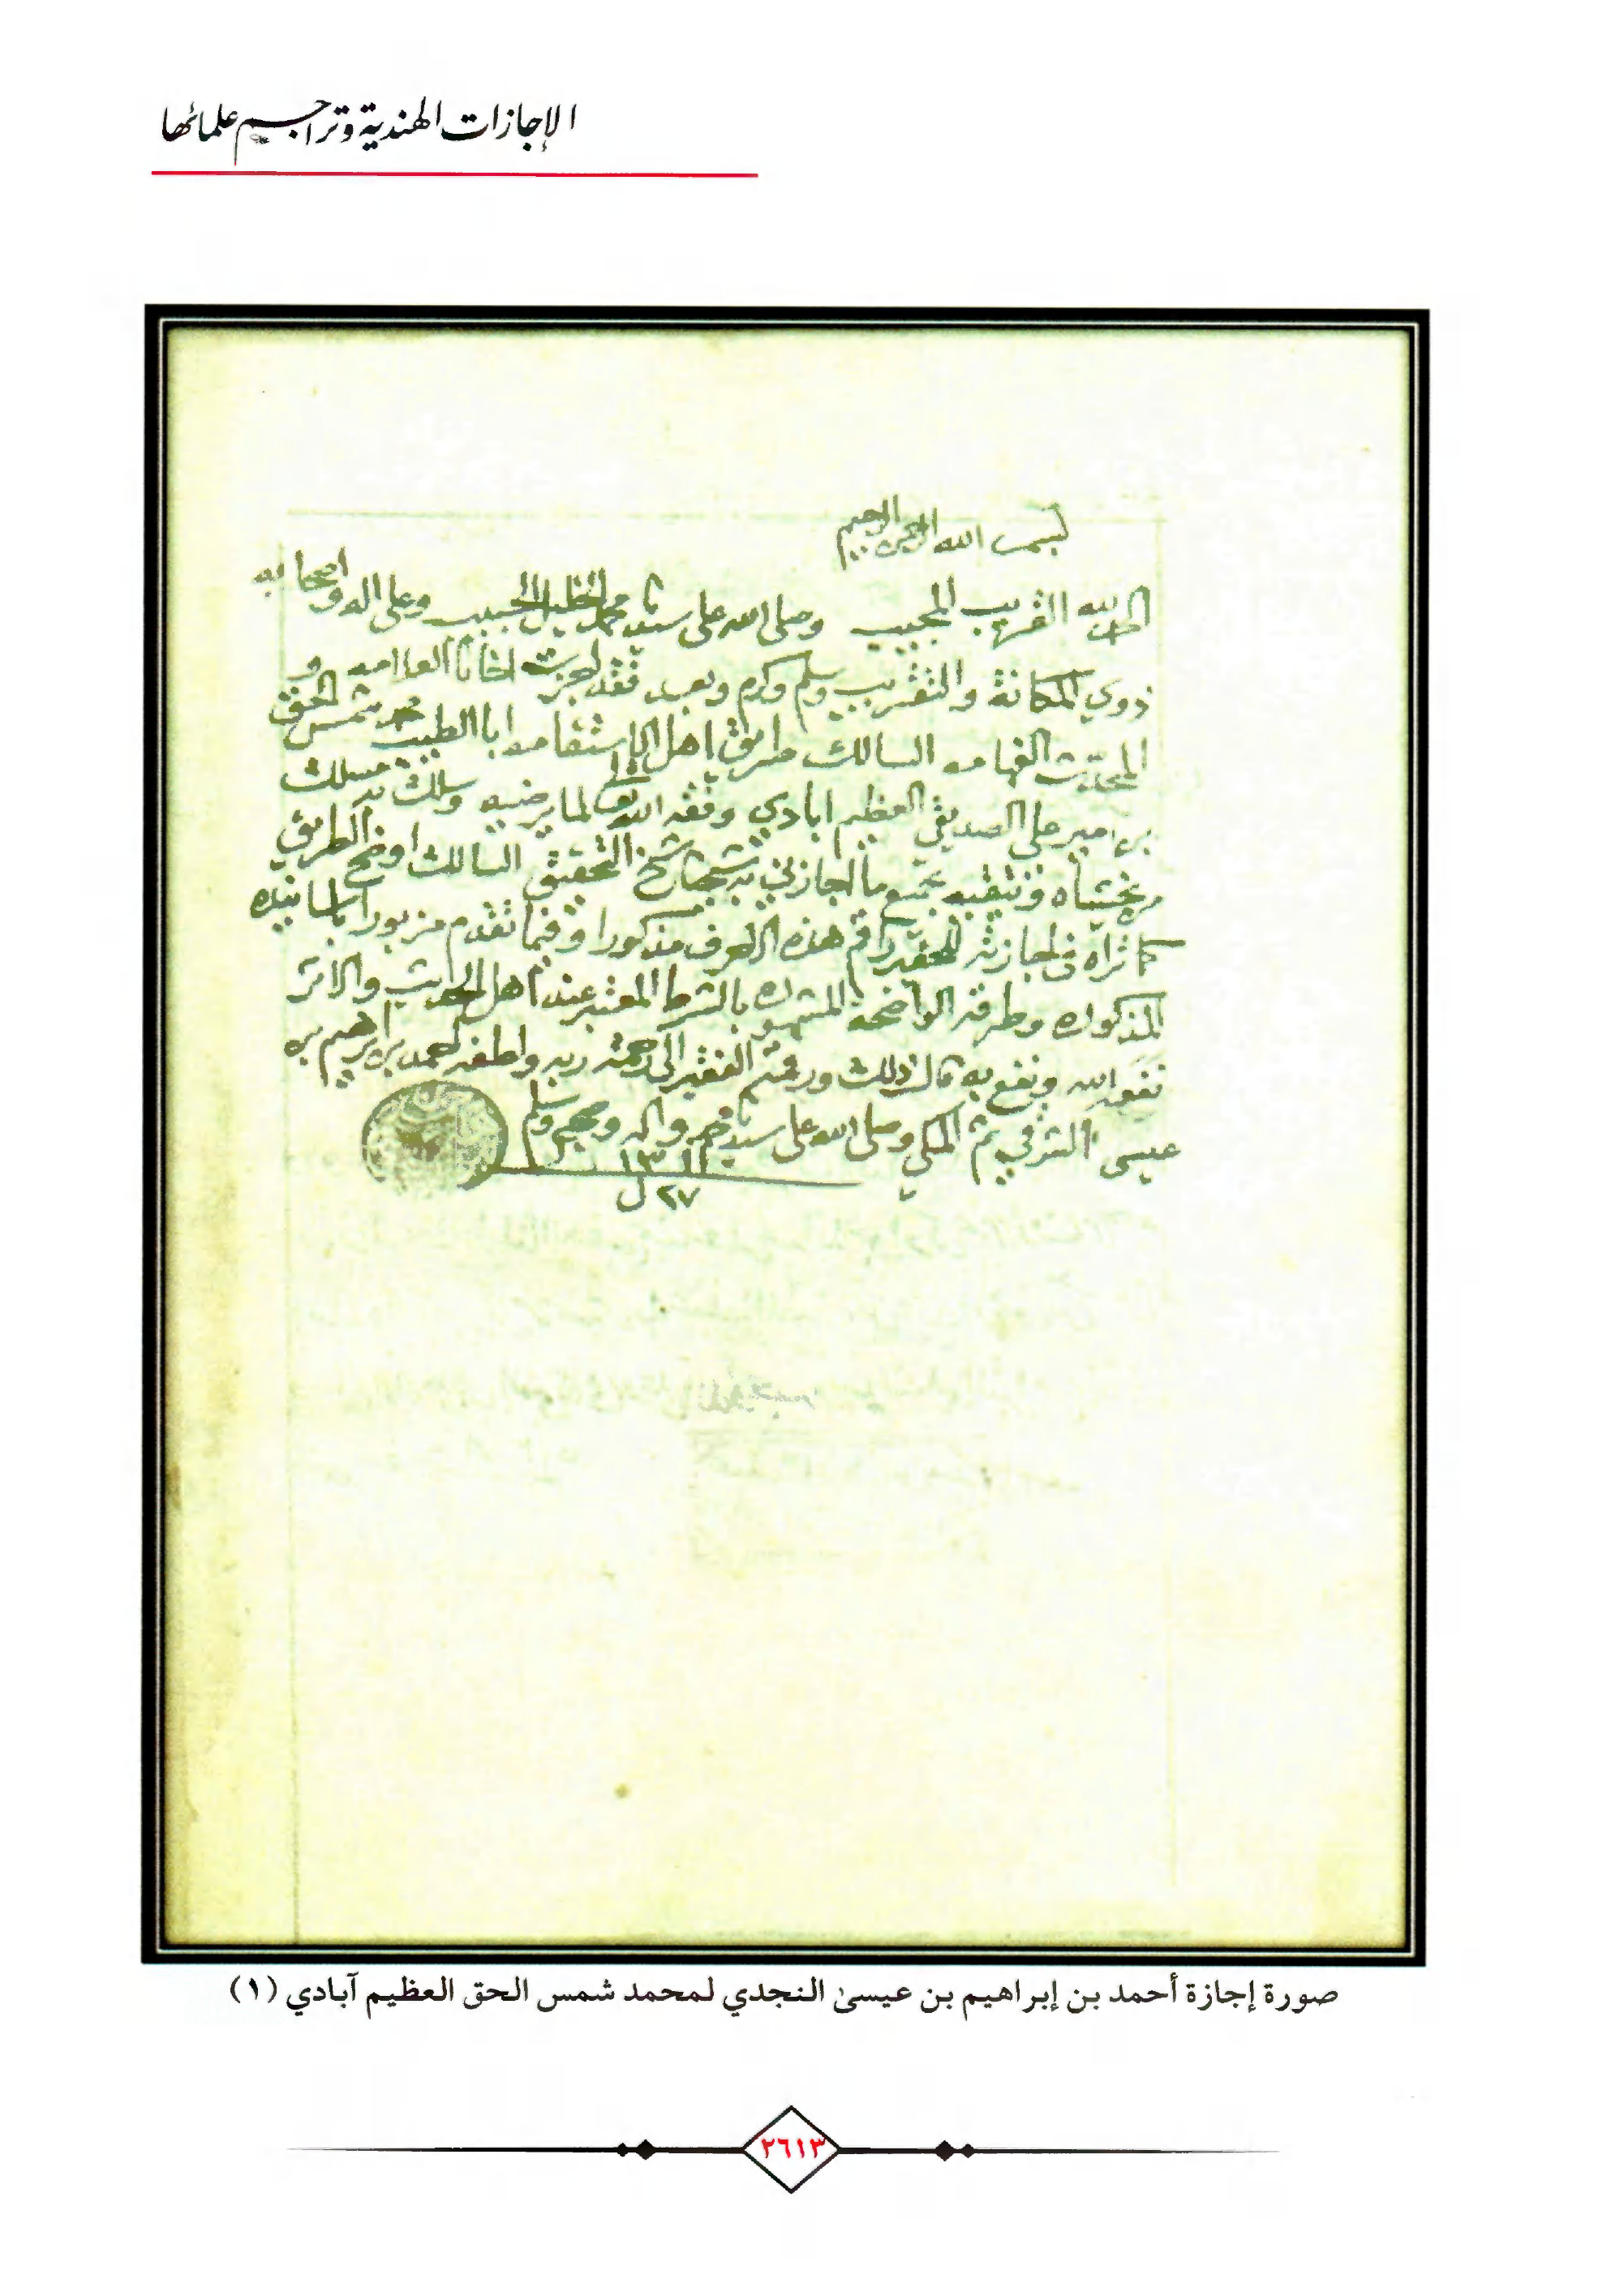 الإجازات الهندية وتراجم علمائها
بسم الله الرحمن الرحيم
الحمد لله القريب المجيب وصلى الله على سيدنا محمد الخليل الحبيب وعلى اله واصحابه
ذوي المكانة والتقريب وسلم وكرم وبعد فقد اجزت اخانا العلامه و
المحدث الفهامه السالك طريق اهل الاستقامه ابا الطيب محمد شمس الحق
بن امير علي الصديقي العظيم ابادي وفقه الله تعالى لما يرضيه وسلك به مسلك
من يخشاه ويتقيه بجميع ما اجازني به شيخنا شيخ التحقيق السالك اوضح الطريق
كما تراه في اجازته للحقير راقم هذه الاحرف مذكورا وفيما تقدم مزبورا باسانيده
المذكوره وطرقه الواضحة المشهوره بالشرط المعتبر عند اهل الحديث والاثر
نفعه الله ونفع به قال ذلك ورقمه الفقير الى رحمة ربه ولطفه احمد بن ابرهيم بن
عيسى الشرقي ثم المكي وصلى الله على سيدنا محمد واله وصحبه وسلم
١٣١١
٢٧ ل
صورة إجازة أحمد بن إبراهيم بن عيسىٰ النجدي لمحمد شمس الحق العظيم آبادي (١)
٢٦١٣